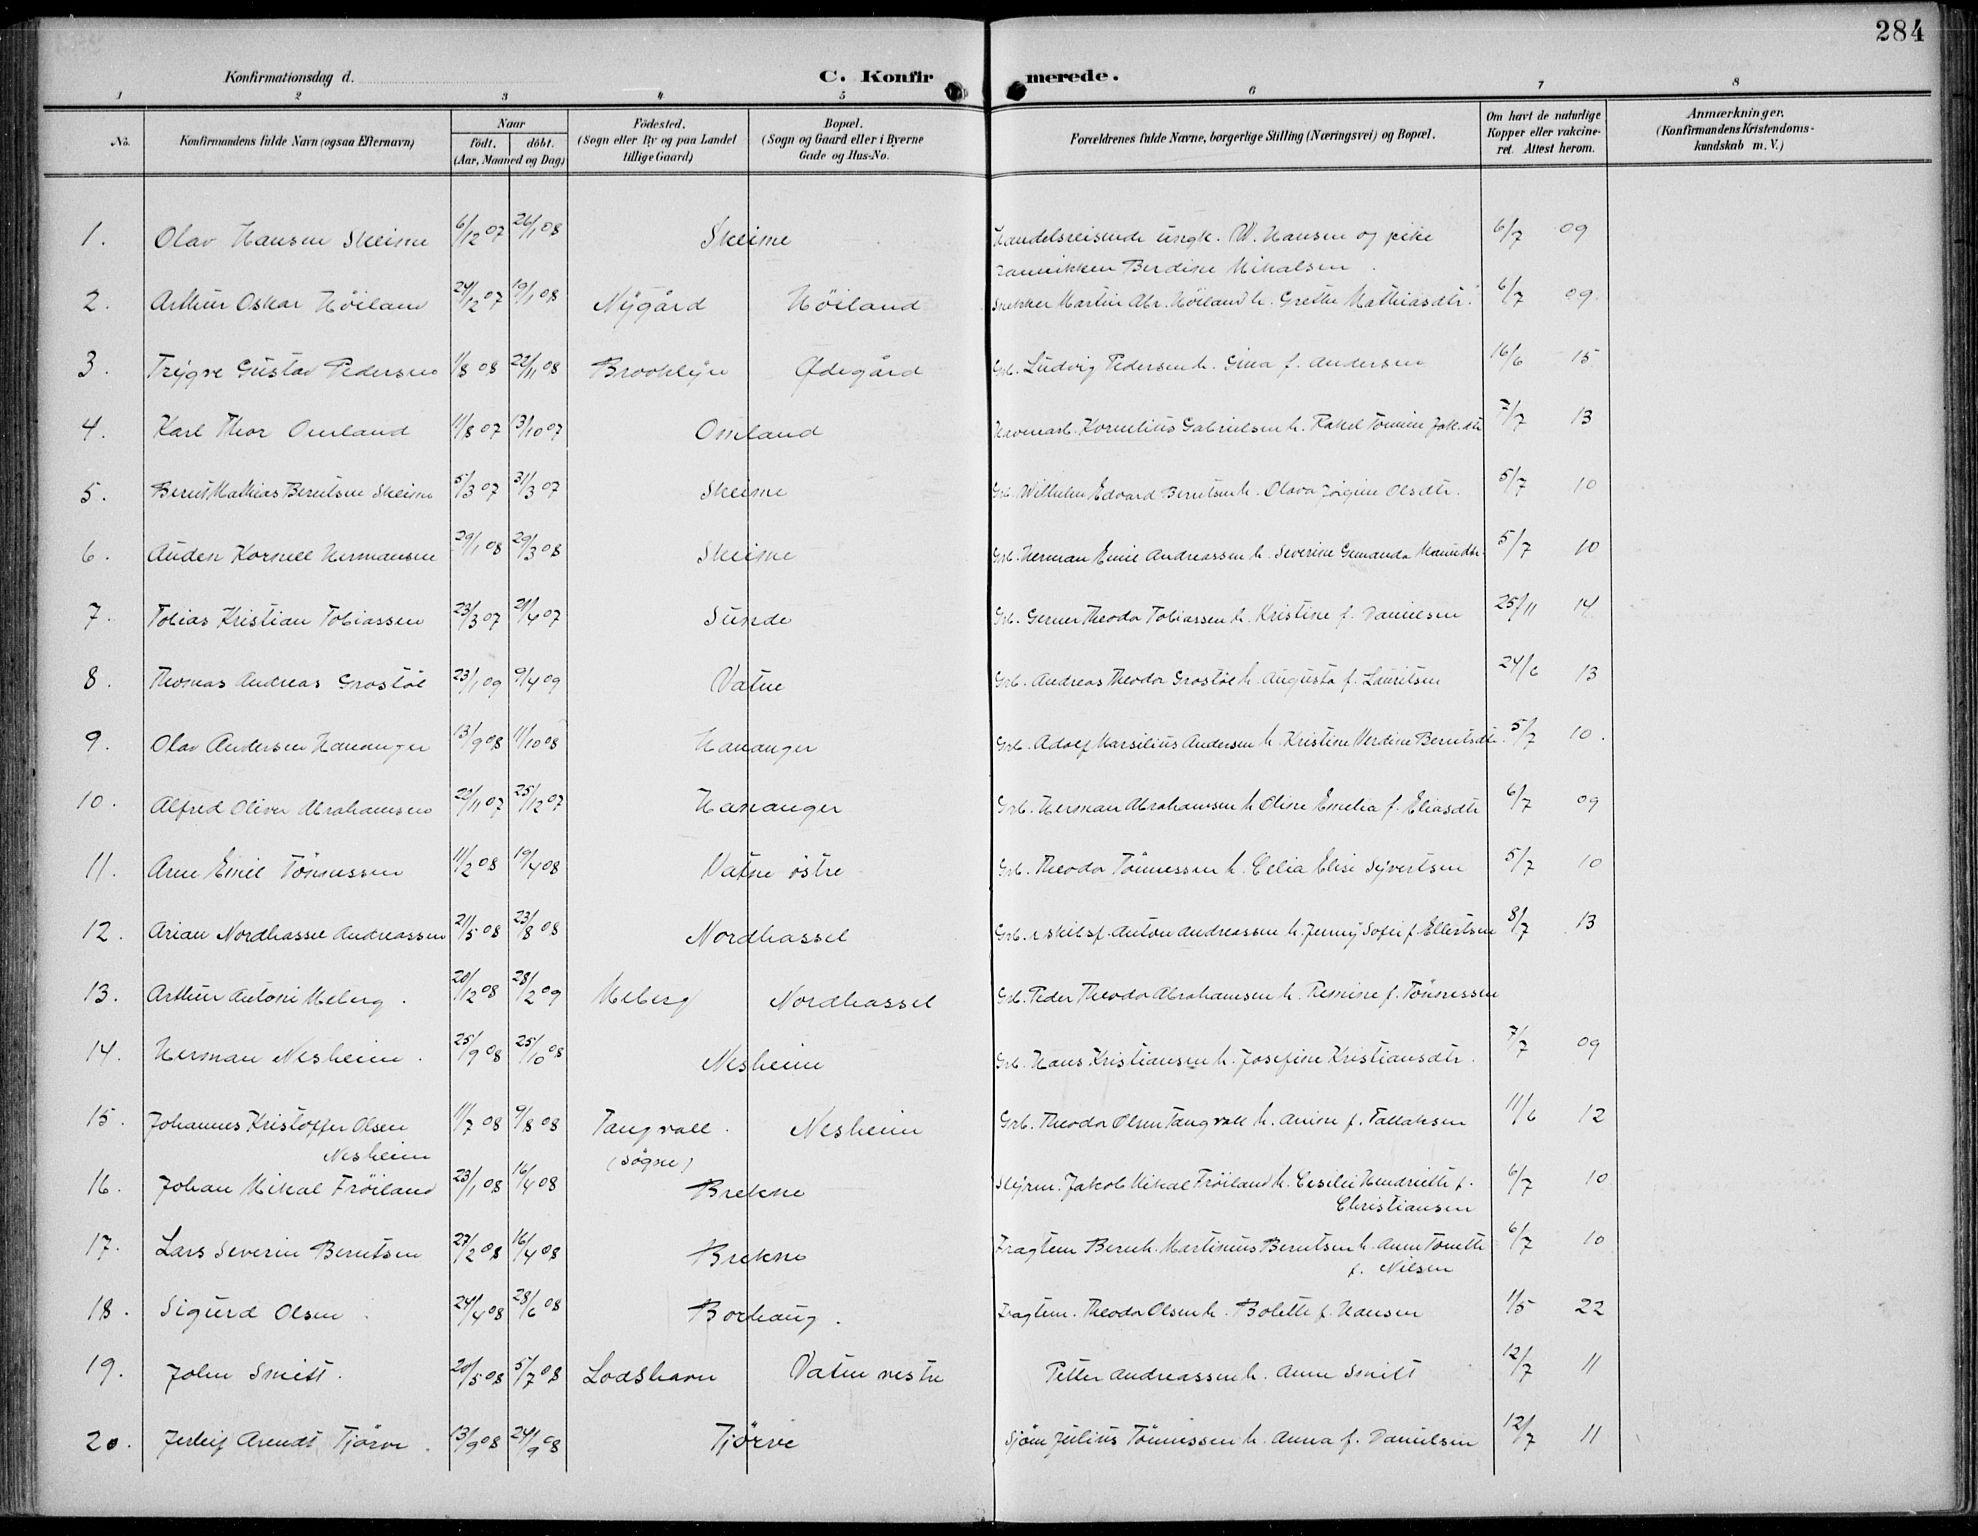 284
Konfirmationsdag d.
C. Konfir merede.
1 2 3 4 5 6 7 8
No.
Konfirmandens fulde Navn (ogsaa Efternavn)
Naar
födt. döbt.
(Aar, Maaned og Dag)
Födested.
(Sogn eller By og paa Landet
tillige Gaard)
Bopæl.
(Sogn og Gaard eller i Byerne
Gade og Hus-No.
Forældrenes fulde Navne, borgerlige Stilling (Næringsvei) og Bopæl.
Om havt de naturlige
Kopper eller vakcine-
ret. Attest herom.
Anmærkninger.
(Konfirmandens Kristendoms-
kundskab m. V.)
1. Olav Hansen Skeime 6/12 07 26/1 08 Skeime Handelsreisende ungk. W. Hansen og pike 6/7 09
Jannikken Berdine Mikalsen
2. Arthur Oskar Höiland 24/12 07 19/1 08 Nÿgård Höiland Snekker Martin Abr. Höiland h. Grethe Mathiasdtr. 6/7 09
3. Trÿgve Gustav Pedersen 1/8 08 22/11 08 Brooklÿn Ødegård Grb. Ludvig Pedersen h. Gina f. Andersen 16/6 15
4. Karl Thor Omland 11/8 07 13/10 07 Omland Havnearb. Kornelius Gabrielsen h. Rakel Tomine Jak.dtr 7/7 13
5. Bernt Mathias Berntsen Skeime 5/3 07 31/3 07 Skeime Grb. Wilhelm Edvard Berntsen h. Olava Jörgine Olsdtr. 5/7 10
6. Auden Kornell Hermansen 29/1 08 29/3 08 Skeime Grb. Herman Emil Andreassen h. Severine Gemanda Hanndtr. 5/7 10
7. Tobias Kristian Tobiassen 23/3 07 21/4 07 Sunde Grb. Gerner Theodor Tobiassen h. Kristine f. Danielsen 25/11 14
8. Thomas Andreas Grostöl 23/1 09 9/4 09 Vatne Grb. Andreas Theodor Grostöl h. Augusta f. Lauritsen 24/6 13
9. Olav Andersen Hananger 13/9 08 11/10 08 Hananger Grb. Adolf Marsilius Andersen h. Kristine Verdine Berntsdtr. 5/7 10.
10. Alfred Oliver Abrahamsen 29/11 07 25/12 07 Hananger Grb. Herman Abrahamsen h. Oline Emelia f. Eliasdtr 6/7 09
11. Arne Emil Tönnessen 11/2 08 19/4 08 Vatne östre Grb. Theodor Tönnessen h. Celia Elise Syvertsen 5/7 10
12. Arian Nordhassel Andreassen 21/5 08 23/8 08 Nordhassel Grb. & skibsf. Anton Andreassen h. Jenny Sofie f. Ellertsen 8/7 13
13. Arthur Antoni Meberg. 20/12 08 28/2 09 Meberg Nordhassel Grb. Peder Theodor Abrahamsen h. Remine f. Tönnessen
14. Herman Nesheim. 25/9 08 25/10 08 Nesheim Grb. Hans Kristiansen h. Josefine Kristiansdtr. 7/7 09
15. Johannes Kristoffer Olsen 11/7 08 9/8 08 Tangvall. Nesheim Grb. Theodor Olsen Tangvall h. Anine f. Tallaksen 11/6 12
Nesheim (Søgne)
16. Johan Mikal Fröiland 23/1 08 16/4 08 Brekne Styrm. Jakob Mikal Fröiland h. Cesilie Hendriette f. 6/7 10
Christiansen
17. Lars Severin Berntsen 27/2 08 16/4 08 Brekne Fragtem Bernh. Martinius Berntsen h. Anne Tonette 6/7 10
f. Nilsen
18. Sigurd Olsen 24/4 08 28/6 08 Borhaug. Fragtem. Theodor Olsen h. Bolette f. Hansen 1/5 22
19. John Smitt. 20/5 08 5/7 08 Lodshavn Vatne vestre Petter Andreassen h. Anne Smitt 12/7 11
20. Jerleif Arendt Tjörve. 13/9 08 24/9 08 Tjörve Sjöm Julius Tönnessen h. Anna f. Danielsen 12/7 11